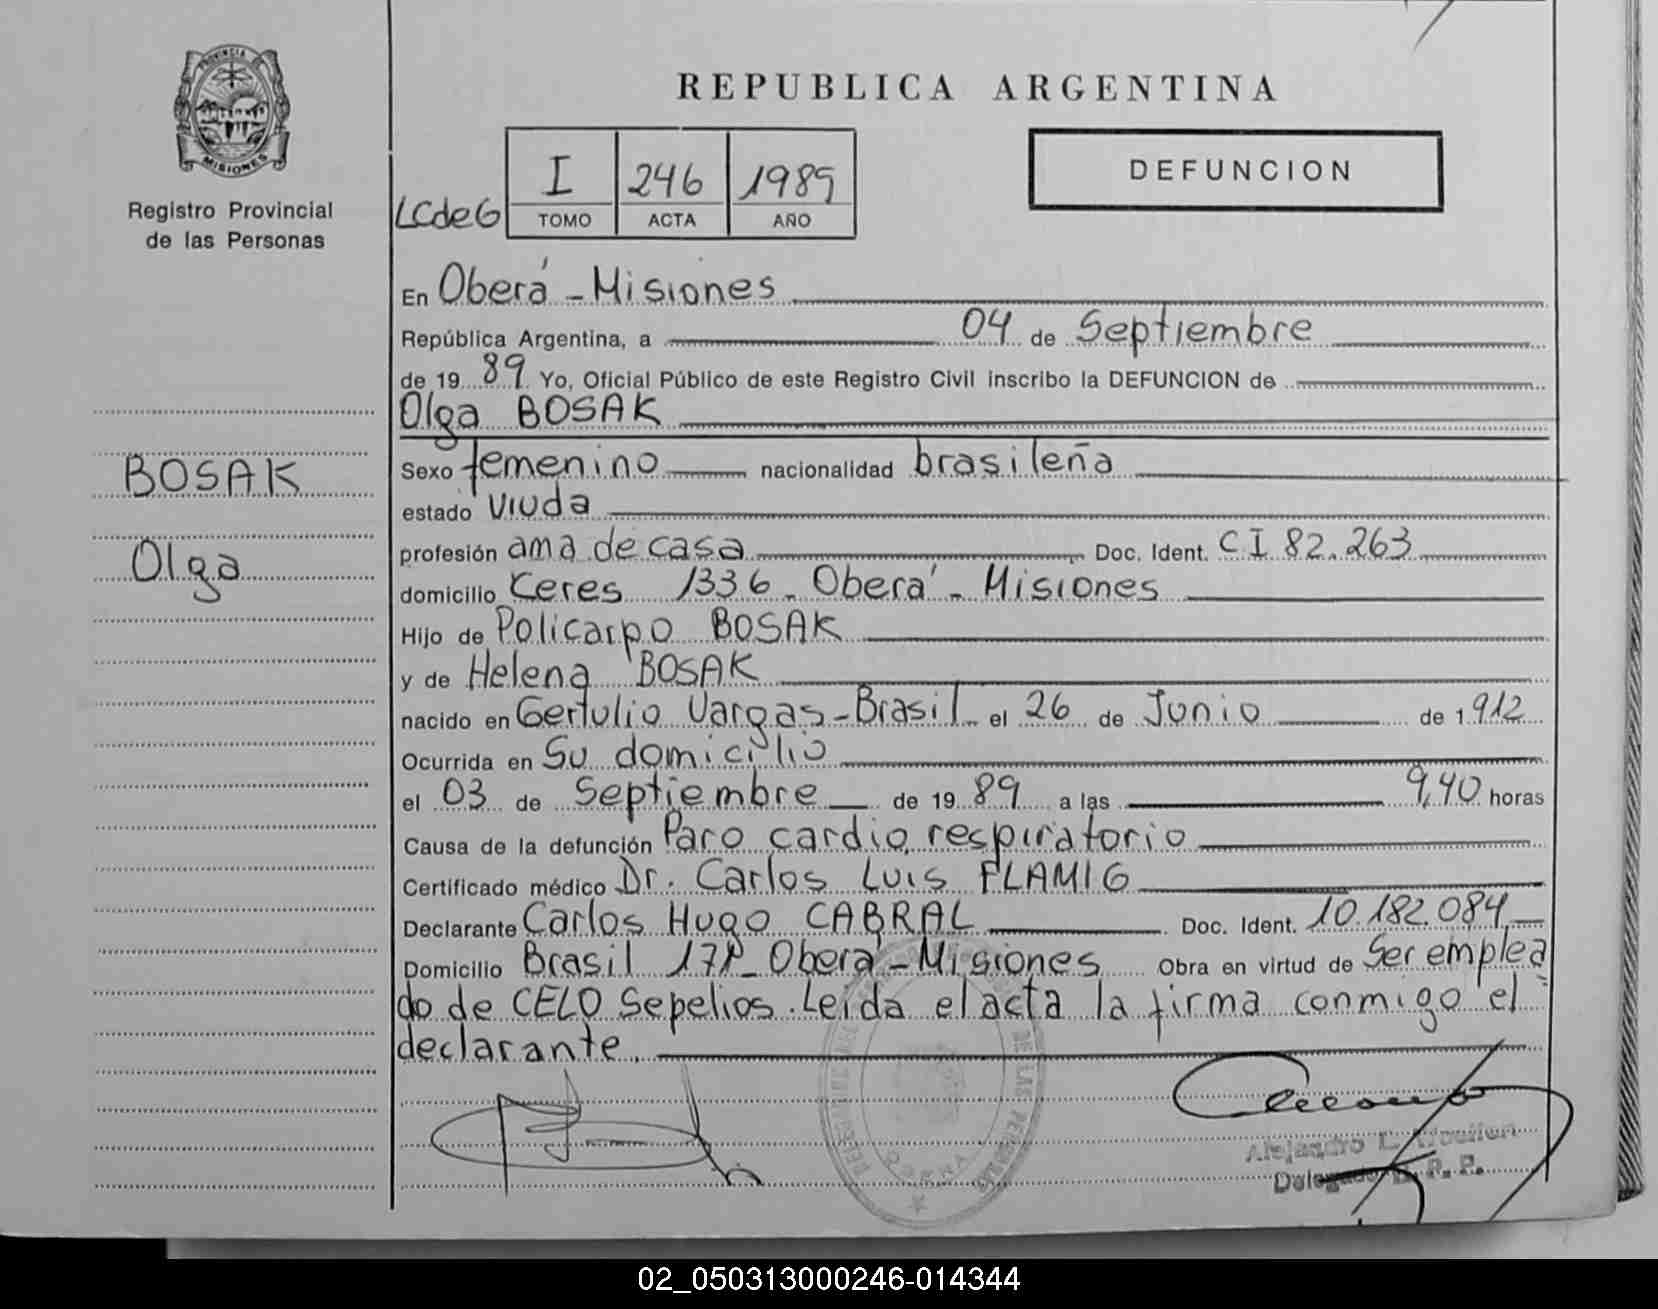 PROVINCIA DE
MISIONES
Registro Provincial
de las Personas
BOSAK
Olga
REPUBLICA ARGENTINA
LCdeG
I 246 1989
TOMO ACTA AÑO
DEFUNCION
En Oberá - Misiones
República Argentina, a 04 de Septiembre
de 19 89 Yo, Oficial Público de este Registro Civil inscribo la DEFUNCION de
Olga BOSAK
Sexo femenino nacionalidad brasileña
estado viuda
profesión ama de casa Doc. Ident. C I 82.263
domicilio Ceres 1336 - Oberá - Misiones
Hijo de Policarpo BOSAK
y de Helena BOSAK
nacido en Gertulio Vargas - Brasil el 26 de Junio de 1.912
Ocurrida en Su domicilio
el 03 de Septiembre de 19 89 a las 9,40 horas
Causa de la defunción Paro cardio respiratorio
Certificado médico Dr. Carlos Luis FLAMIG
Declarante Carlos Hugo CABRAL Doc. Ident. 10.182.084
Domicilio Brasil Oberá - Misiones Obra en virtud de Ser emplea
do de CELO Sepelios. Leida el acta la firma conmigo el
declarante.
DE LAS PERSONAS
OBERA
Alejandro
Delegado R. P. P.
02_050313000246-014344